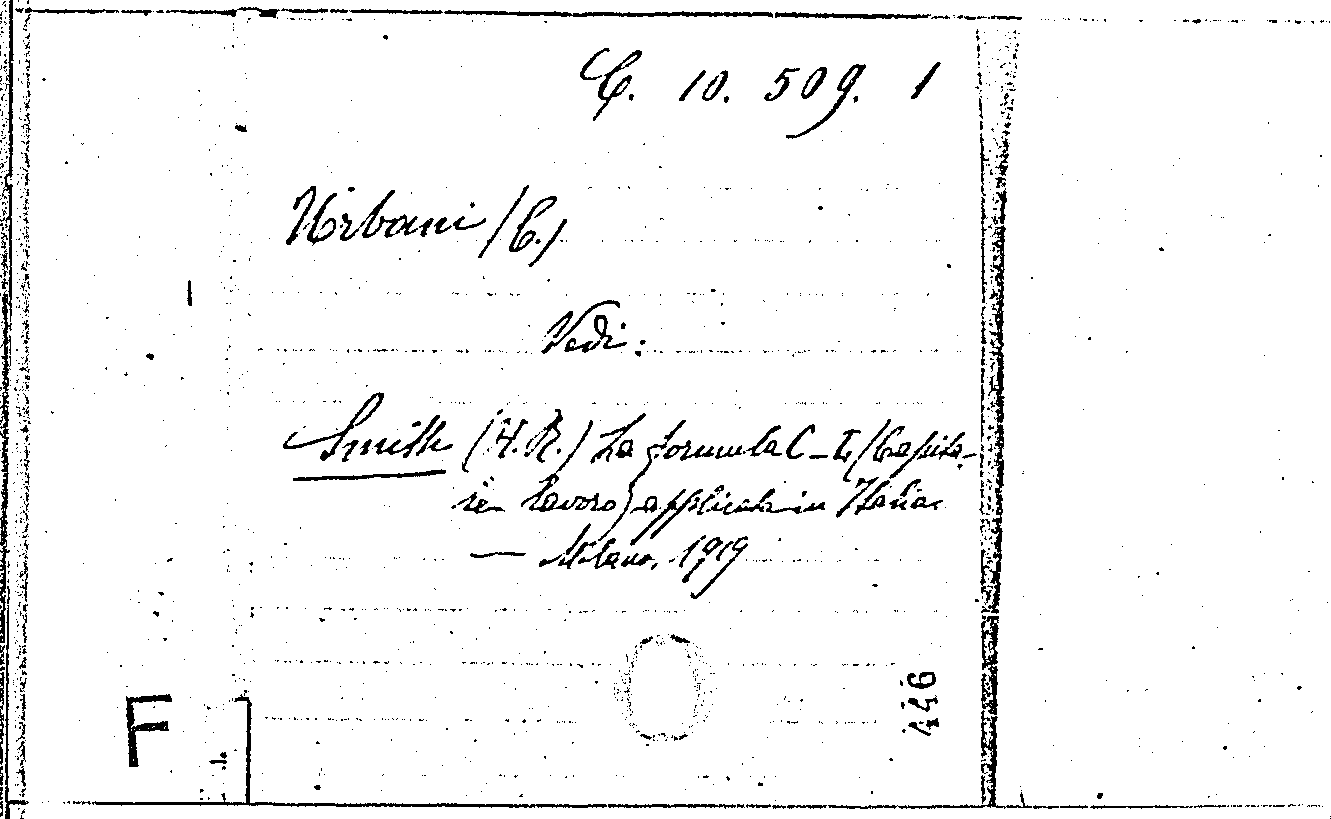 C. 10. 509. 1
Urbani (C.)
Vedi:
Smith (H. R.) La formula C-L (Capita-
le-Lavoro) applicata in Italia.
— Milano, 1919
446
F